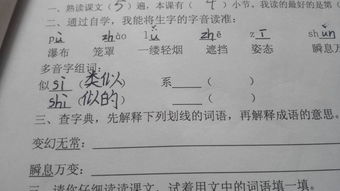 一、熟读课文(5)遍,本课有(4)小节,我读的最好的是第(
二、通过自学,我能将生字的字音读准:
pù zhào lǚ zhē zī shùn
瀑布 笼罩 一缕轻烟 遮挡 姿态 瞬息万
多音字组词:
似 sì (类似) 系 ( )
shì (似的) ( )
三、查字典,先解释下列划线的词语,再解释成语的意思。
变幻无常:
瞬息万变:
三、请你仔细读读课文,试着用文中的词语填一填。